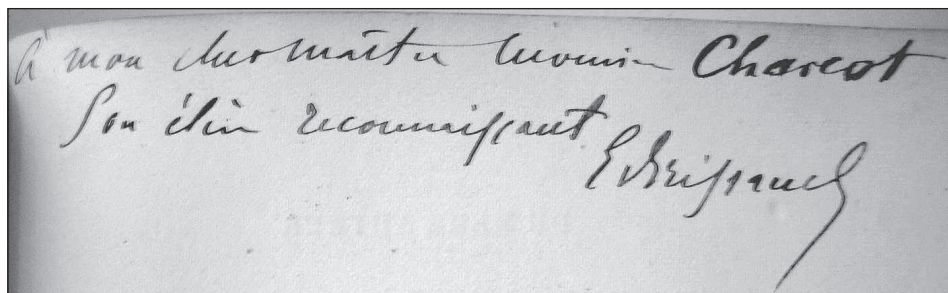 À mon cher Maître Monsieur Charcot
Son élève reconnaissant
E Brissaud